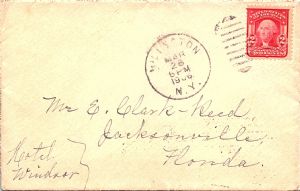 MAR
26
6 PM
1906
N.Y.
Mr E. Clark-Reed,
Jacksonville,
Florida.
Hotel
Windsor